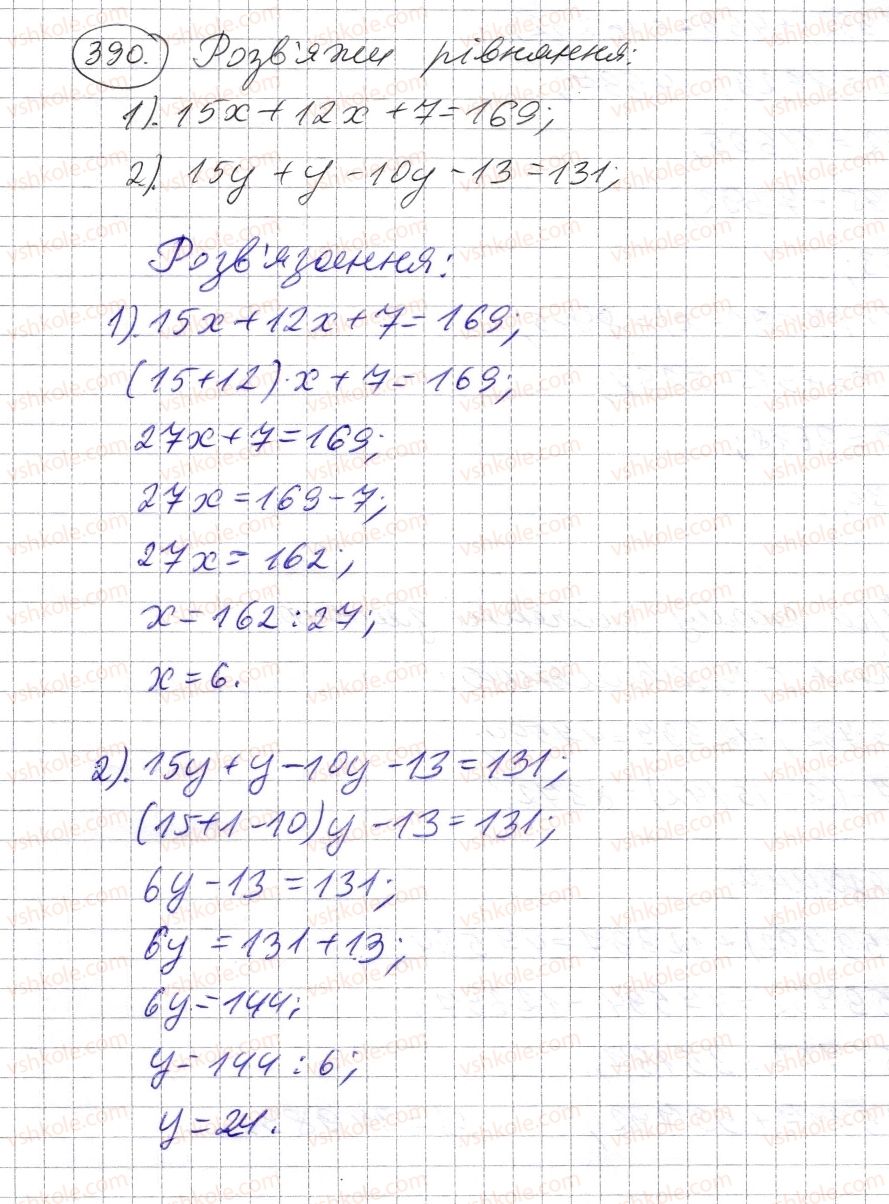 390. Розв'яжи рівняння:
1). 15x + 12x + 7 = 169;
2). 15y + y - 10y - 13 = 131;
Розв'язання:
1). 15x + 12x + 7 = 169;
(15 + 12) · x + 7 = 169;
27x + 7 = 169;
27x = 169 - 7;
27x = 162;
x = 162 : 27;
x = 6.
2). 15y + y - 10y - 13 = 131;
(15 + 1 - 10) y - 13 = 131;
6y - 13 = 131;
6y = 131 + 13;
6y = 144;
y = 144 : 6;
y = 24.
vshkole.com